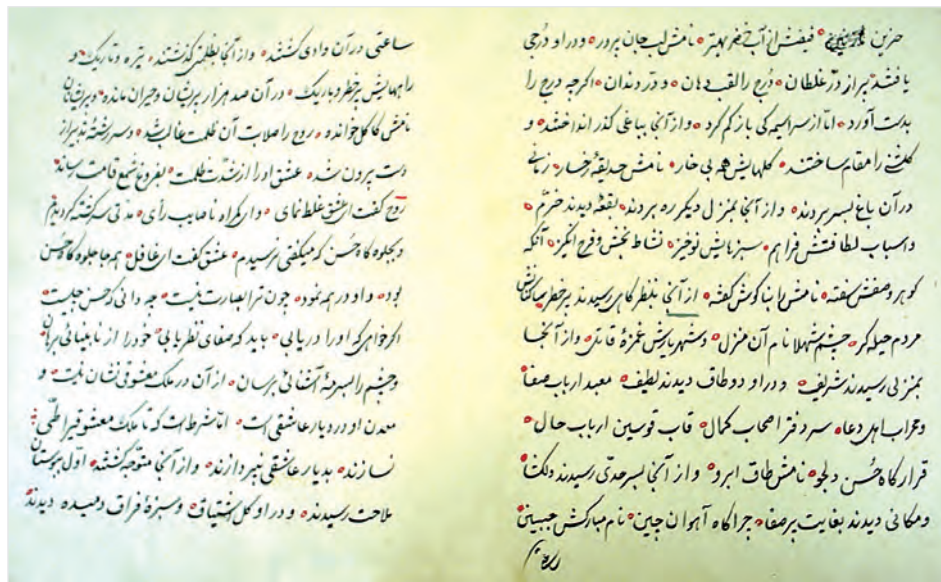 حزین فیضش از آب خضر بهتر نامش لب جان پرور و در او درجی
یافتند پر از در غلطان درج را لقب دهان و در دندان اگرچه درج را
بدست آورد اما از سراسیمگی باز گم کرد و از آنجا بباغی گذر انداختند و
گلشنی را مقام ساختند گلهایش همه بی خار نامش حدیقهٔ رخسار زمانی
در آن باغ بسر بردند و از آنجا بمنزل دیگر ره بردند بقعهٔ دیدند خرم
و اسباب لطافتش فراهم سبزهایش نوخیز نشاط بخش و فرح انگیز آنکه
گوهر وصفش سفته نامش را بناگوش گفته از آنجا بنظرگاهی رسیدند پرخطر ساکنانش
مردم حیله گر چشم شهلا نام آن منزل و شهریارش غمزهٔ قاتل و از آنجا
بمنزلی رسیدند شریف و در او دو طاق دیدند لطیف معبد ارباب صفا
و محراب اهل دعا سر دفتر اصحاب کمال قاب قوسین ارباب حال
قرارگاه حسن دلجو نامش طاق ابرو و از آنجا بسرحدی رسیدند دلگشا
و مکانی دیدند بغایت پرصفا چراگاه آهوان چین نام مبارکش جبین
ساعتی در آن وادی گشتند و از آنجا بظلمتی گذشتند تیره و تاریک و
راههایش پرخطر و باریک در آن صد هزار پریشان و حیران مانده و پریشانان
نامش کاکل خوانده روح را صلابت آن ظلمت غالب شد و سررشتهٔ تدبیر از
دست بیرون شد عشق او را از شدت ظلمت بفروغ شمع قامت رساند
روح گفت ای عشق غلط نمای و ای گمراه ناصایب رأی مدتی سرگشته گردیدیم
و بجلوه گاه حسن که میگفتی نرسیدیم عشق گفت ای غافل همه جا جلوه گاه حسن
بود و او در همه نمود چون ترا بصارت نیست چه دانی که حسن چیست
اگر خواهی که او را دریابی باید که صفای نظر یابی خود را از نابینائی برهان
و چشم را بسرمهٔ آشنائی برسان از آن در ملک معشوقی نشان نیست و
معدن او در دیار عاشقی است اما شرط است که تا ملک معشوقی را طی
نسازند بدیار عاشقی نپردازند و از آنجا متوجه گشتند اول ببوستان
ملاحت رسیدند و در او گل اشتیاق و سبزهٔ فراق دمیده دیدند